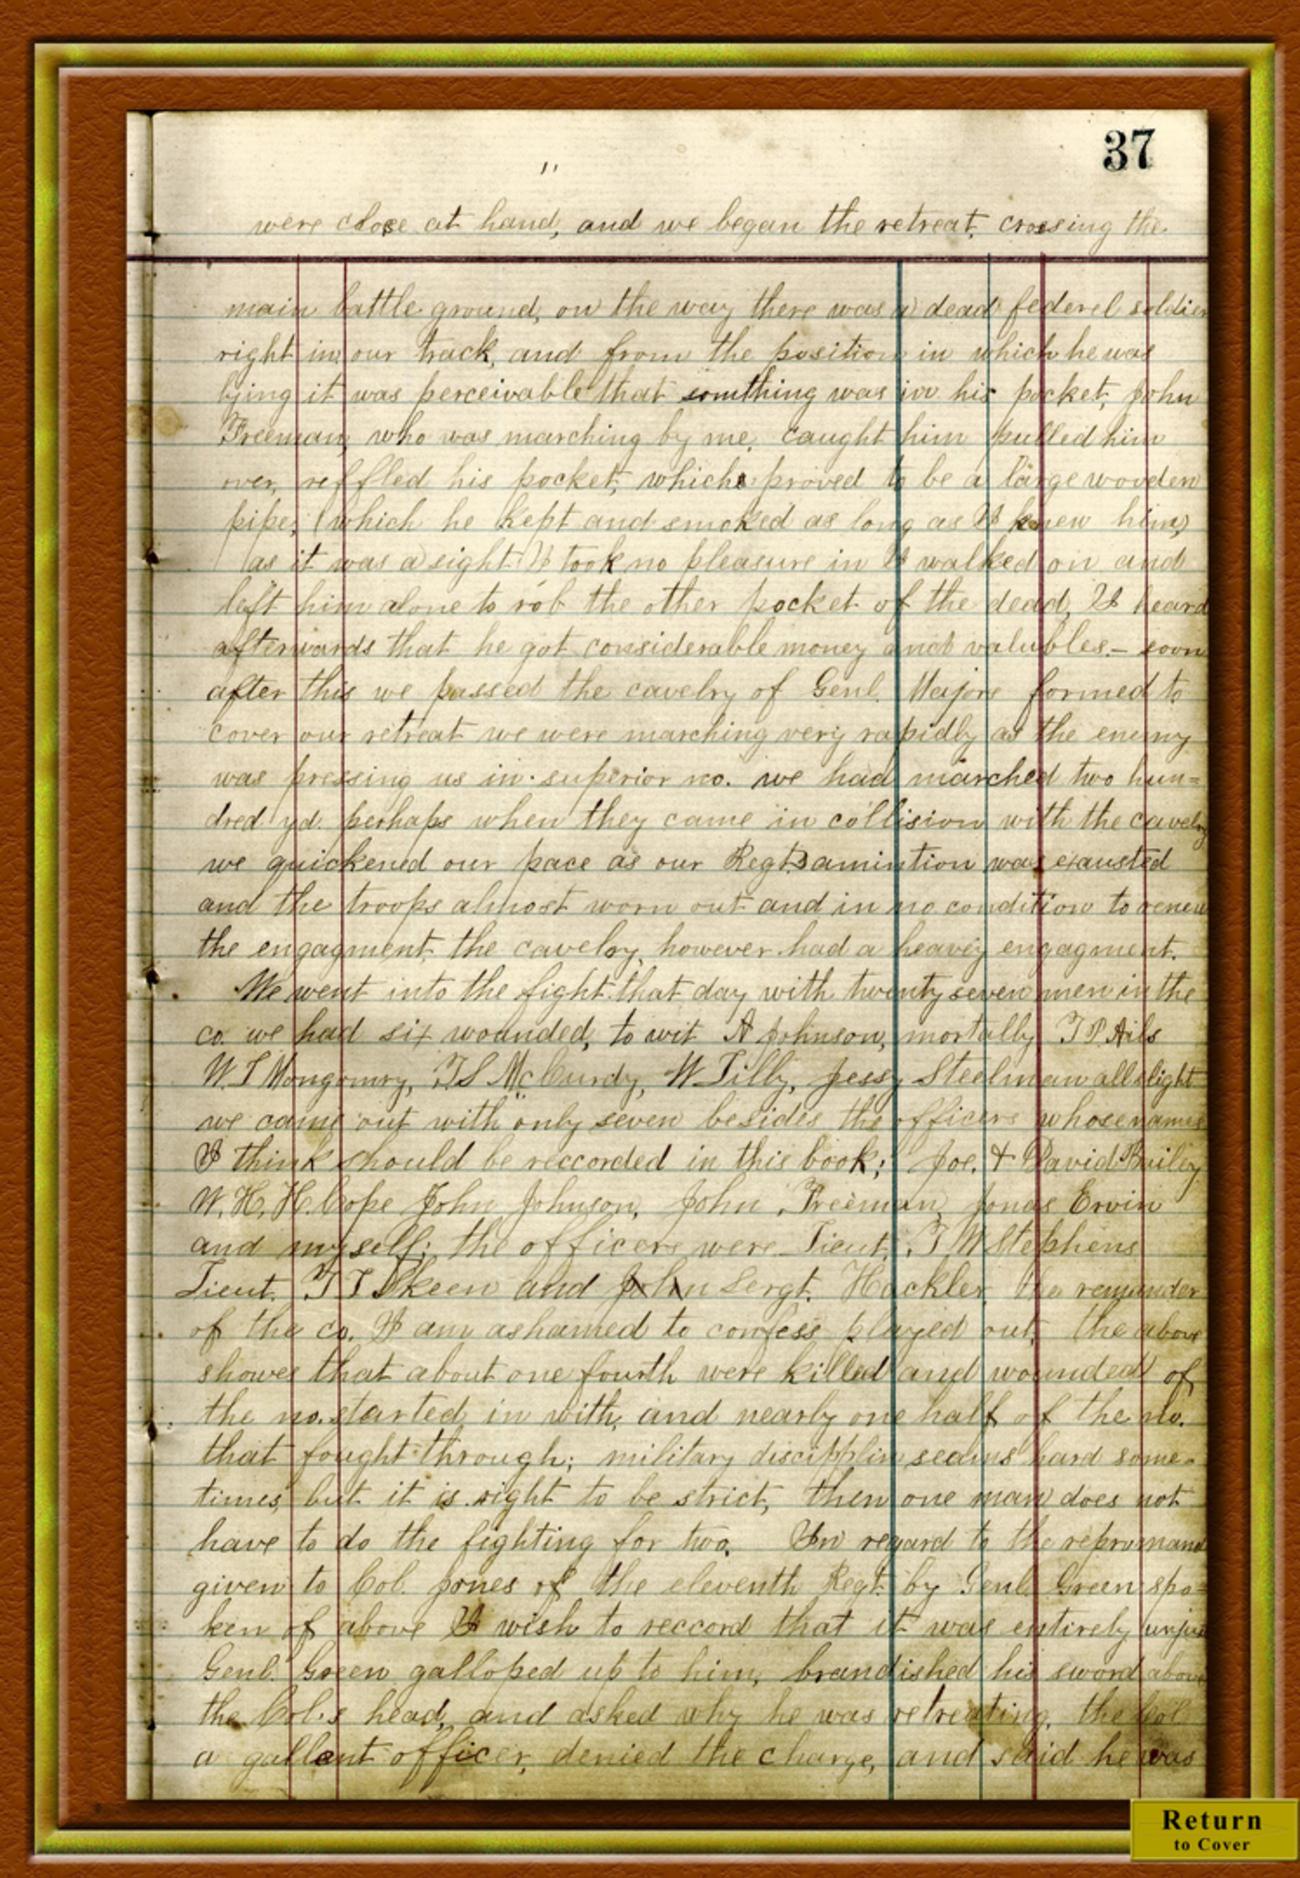 37
"
were close at hand, and we began the retreat, crossing the
main battle ground, on the way there was a dead federel soldier
right in our track, and from the position in which he was
lying it was perceivable that somthing was in his pocket, John
Freeman, who was marching by me, caught him pulled him
over, reffled his pocket, which proved to be a large wooden
pipe, (which he kept and smoked as long as I knew him)
as it was a sight I took no pleasure in I walked on and
left him alone to rob the other pocket of the dead, I heard
afterwards that he got considerable money and valubles.– soon
after this we passed the cavelry of Genl. Majors formed to
cover our retreat we were marching very rapidly as the enemy
was pressing us in superior no. we had marched two hun=
dred yd. perhaps when they came in collision with the cavelry
we quickened our pace as our Regts amintion was exausted
and the troops almost worn out and in no condition to renew
the engagment, the cavelry, however had a heavey engagment.
We went into the fight that day with twenty seven men in the
co. we had six wounded, to wit A Johnson, mortally T P Ails
W. T Mongomry, T. S McCurdy, W Tilly, Jessy Steelman all slight
we came out with only seven besides the officers whose names
I think should be reccorded in this book; Joe. & David Bailey
W. H. H. Cope John Johnson, John Freeman, Jonas Ervin
and myself; the officers were Lieut. T. W Stephens
Lieut. T T Skeen and John Sergt. Hackler the remainder
of the co. I am ashamed to confess played out, the above
showes that about one fourth were killed and wounded of
the no. started in with, and nearly one half of the no.
that fought through; military discipplin seams hard some-
times, but it is right to be strict, then one man does not
have to do the fighting for two. In regard to the repromand
given to Col. Jones of the eleventh Regt. by Genl. Green spo=
ken of above I wish to reccord that it was entirely unjust
Genl. Green galloped up to him, brandished his sword above
the Col.s head, and asked why he was retreating, the Col
a gallent officer, denied the charge, and said he was
Return
to Cover